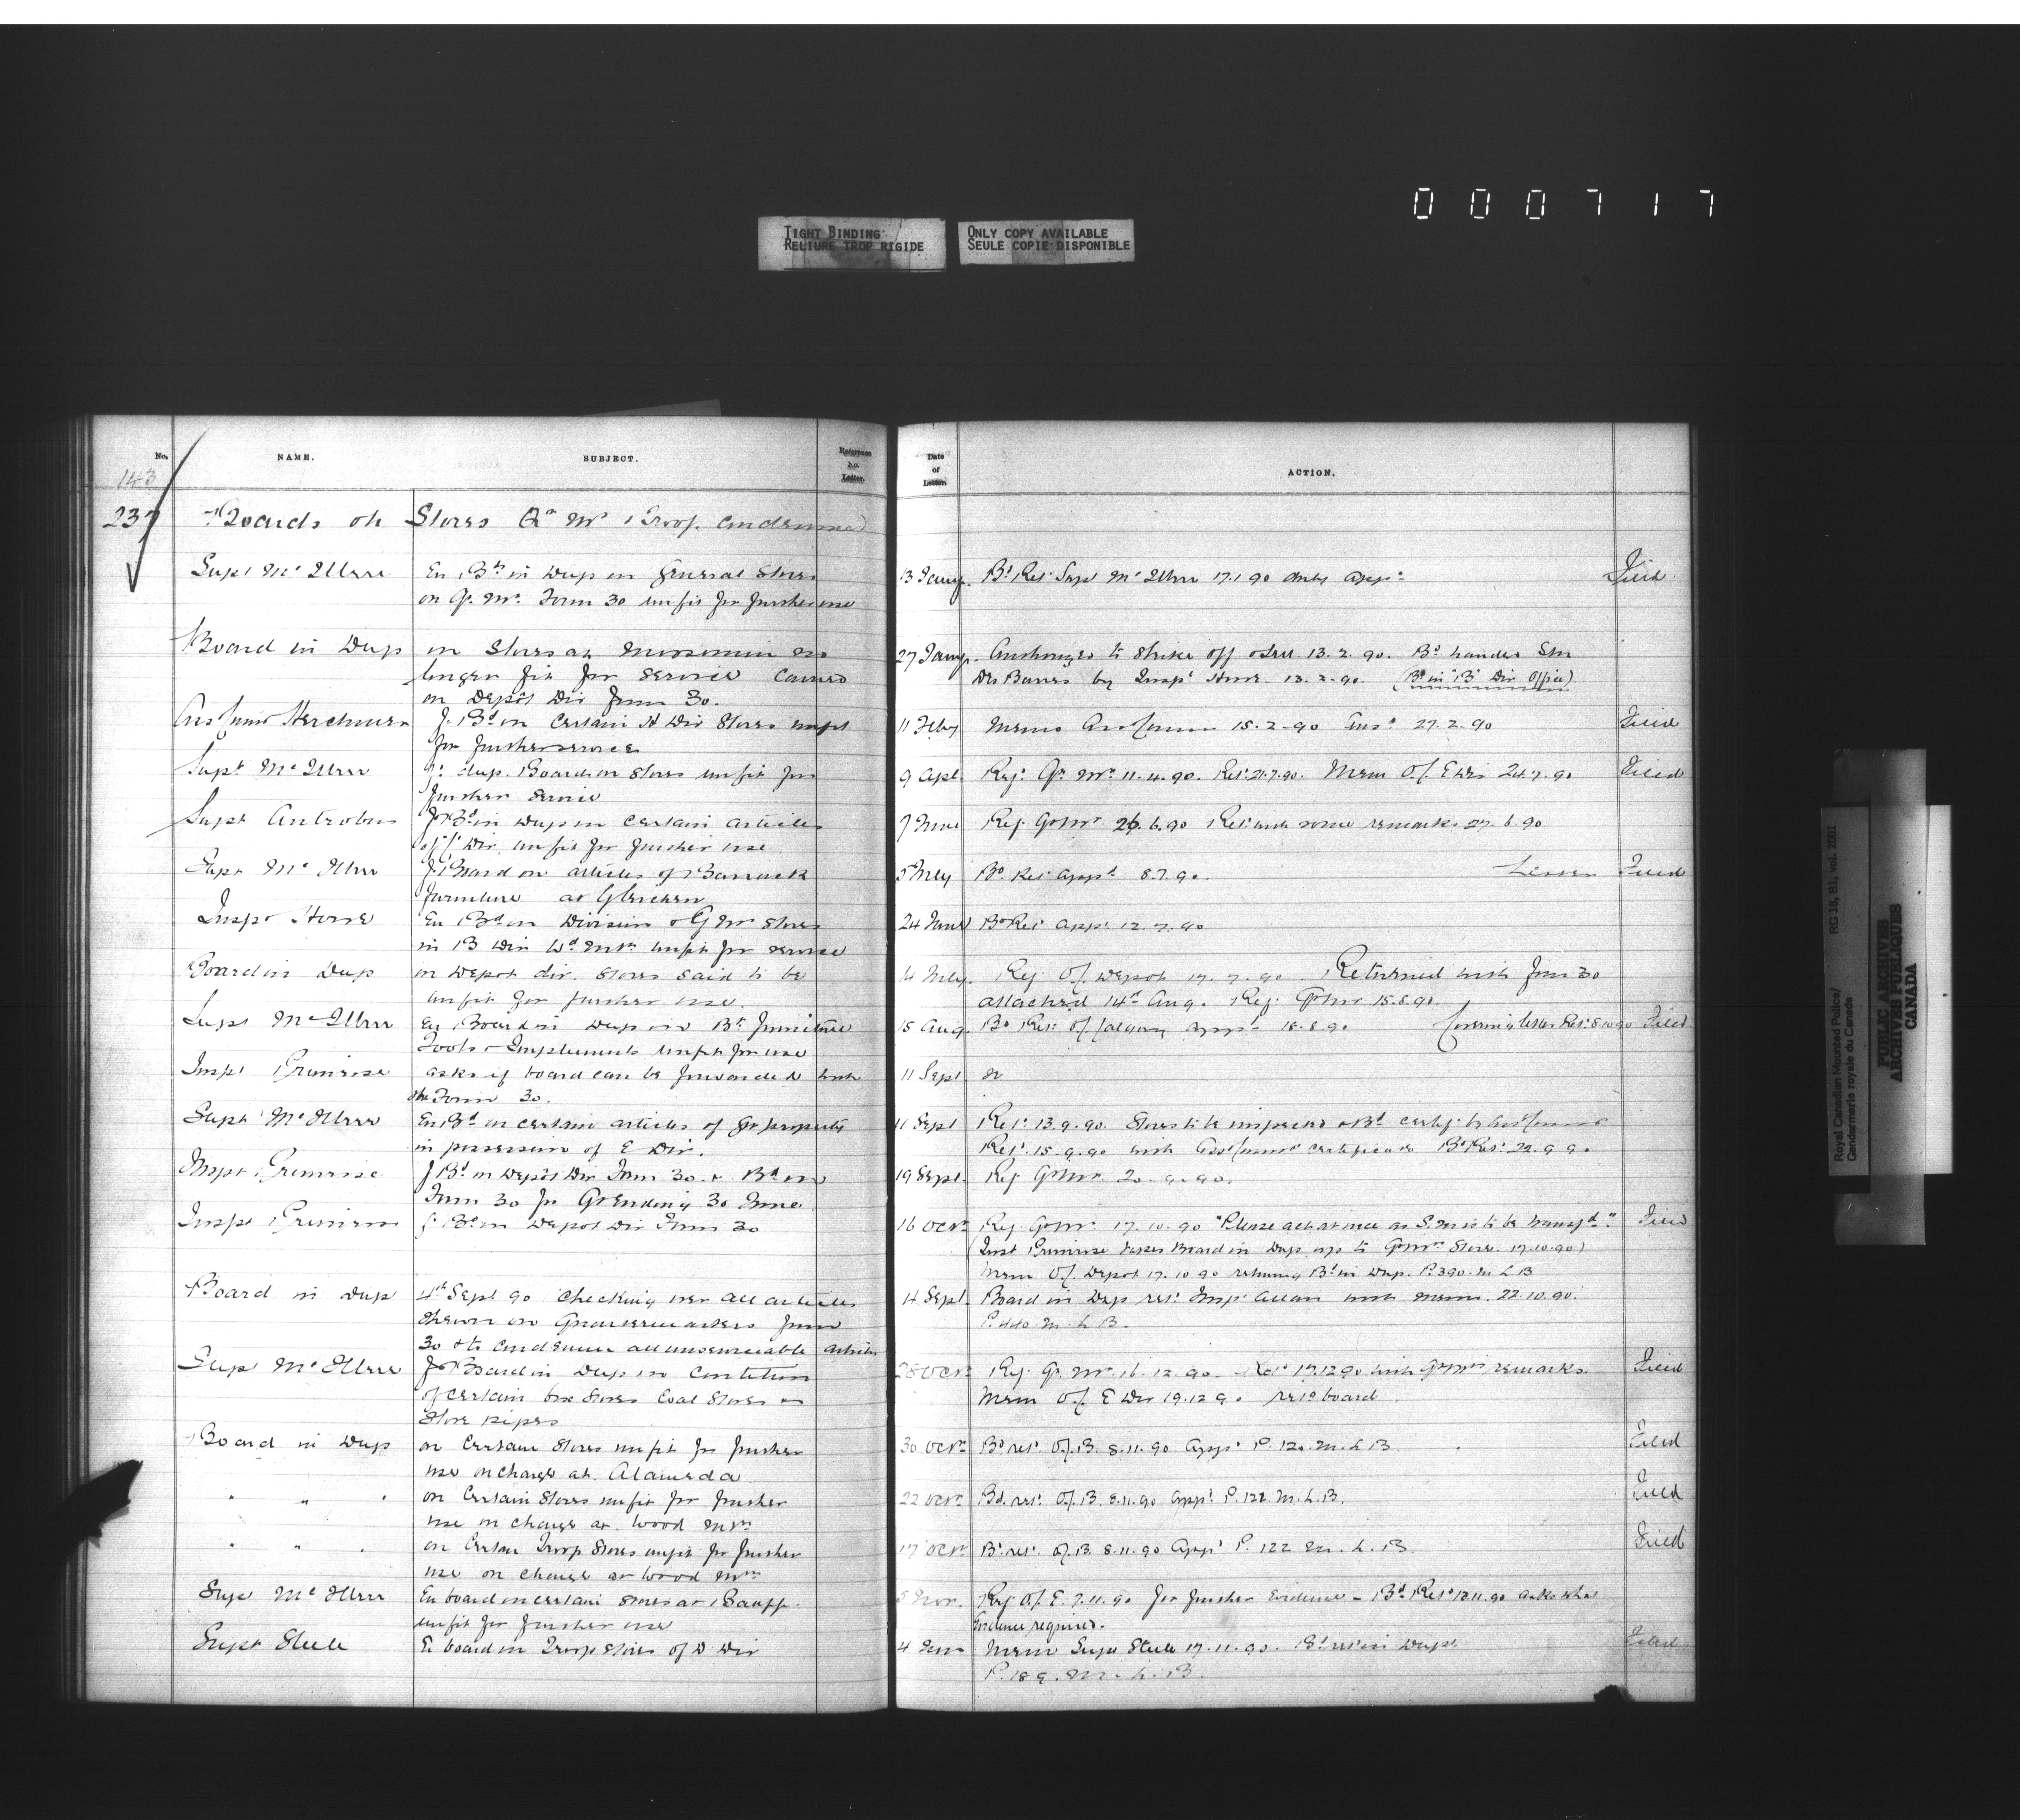 000717
TIGHT BINDING
RELIURE TROP RIGIDE
ONLY COPY AVAILABLE
SEULE COPIE DISPONIBLE
No.
NAME.
SUBJECT.
Reference No. Letter.
Date of Letter.
ACTION.
143
237 Boards on Stores Qr Mr & Troop Condemned
Supt McIllree En Bd in Dup on General Stores 13 Jany Bd Ret Supt McIllree 17.1.90 duly appd Filed
on Qr Mr Form 30 unfit for further use
Board in Dup on Stores at Moosomin no 27 Jany Authorized to strike off 13.2.90. Bd handed
longer fit for service Carried Des Barres by Inspr Howe 13.2.90 (Bd in "B" Div Office)
on Depot Div Form 30.
Asst Commr Herchmer f. Bd on certain Div Stores unfit 11 Feby Memo Asst Commr 15.2.90 Ansd 27.2.90 Filed
for further service
Supt McIllree f. dup. Board on Stores unfit for 9 Apl Ref. Qr Mr 11.4.90. Ret 21.7.90. Mem O/C E Div 24.7.90 Filed
further service
Supt Antrobus f. Bd in Dup on certain articles 7 June Ref. Qr Mr 26.6.90 Ret with some remarks 27.6.90
Div. unfit for further use
Supt McIllree f. Board on articles of Barrack Bd Ret appd 8.7.90. Filed
furniture at Gleichen
Inspr Howe En Bd on Division & Qr Mr Stores 24 June Bd Ret appd 12.7.90
in B Div Wd Mtn unfit for service
Board in Dup on Depot div. Stores said to be 14 July Ref. O/C Depot 17.7.90. Returned with form 30
unfit for further use. attached 14th Aug. Ref. Qr Mr 15.8.90
Supt McIllree En Board in Dup on Bk furniture 15 Aug Bd Ret O/C Calgary appd 18.8.90 Covering letter Ret 8.10.90 Filed
Tools & Implements unfit for use
Inspr Primrose asks if board can be forwarded with 11 Sept
the Form 30.
Supt McIllree En Bd on certain articles of property 11 Sept Ret 13.9.90. Stores to be inspected & Bd certif. by Asst Commr
in possession of E Div. Ret 15.9.90 with Asst Commr certificate Bd Ret 22.9.90
Inspr Primrose f. Bd on Depot Div Form 30 & Bd on 19 Sept Ref Qr Mr 20.9.90.
Form 30 for Qr Ending 30 June
Inspr Primrose f. Bd on Depot Div Form 30 16 Octr Ref. Qr Mr 17.10.90 "Please act at once as S.M. is to be transfd" Filed
Inspr Primrose takes Board in Dup up to Qr Mr Store 17.10.90)
Mem O/C Depot 17.10.90 returning Bd in Dup. P.390 M L B
Board in Dup 4th Sept 90 Checking over all articles 14 Sept Board in Dup ret Inspr Allan with memo 22.10.90.
shewn on Quartermasters form P.440 M.L.B.
30 & to condemn all unserviceable articles
Supt McIllree f. Board in Dup on condition 28 Octr Ref. Qr Mr 16.12.90. Ret 17.12.90 with Qr Mr's remarks. Filed
of certain box Stoves Coal Stoves & Mem O/C E Div 19.12.90 board
Stove pipes
Board in Dup on certain Stores unfit for further 30 Octr Bd ret O/C B. 8.11.90 appd P.120 M.L.B. Filed
use on charge at Alameda
" " " on certain Stores unfit for further 22 Octr Bd. ret O/C B. 8.11.90 appd P.122 M.L.B. Filed
use on charge at Wood Mtn
" " " on certain Troop Stores unfit for further 17 Octr Bd ret O/C B. 8.11.90 appd P. 122 M.L.B. Filed
use on charge at Wood Mtn
Supt McIllree En board on certain Stores at Banff 5 Nov. Ref. O/C E. 7.11.90 for further Evidence - Bd Ret 12.11.90 asks what
unfit for further use Evidence required.
Supt Steele En board on Troop Stores of D Div 4 Nov Mem Supt Steele 17.11.90. Bd ret in Dup. Filed
P.189. M.L.B.
Royal Canadian Mounted Police/
Gendarmerie royale du Canada
RG 18, B1, vol. 2001
PUBLIC ARCHIVES
ARCHIVES PUBLIQUES
CANADA